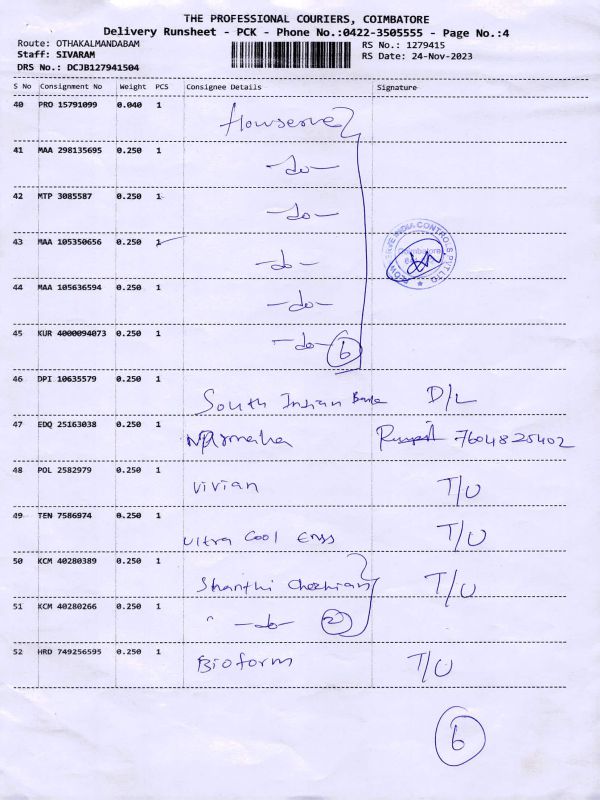 THE PROFESSIONAL COURIERS, COIMBATORE
Delivery Runsheet - PCK - Phone No.:0422-3505555 - Page No.:4
Route: OTHAKALMANDABAM RS No.: 1279415
Staff: SIVARAM RS Date: 24-Nov-2023
DRS No.: DCJB127941504
S No Consignment No Weight PCS Consignee Details Signature
40 PRO 15791099 0.040 1 Flowserve
41 MAA 298135695 0.250 1 -do-
42 MTP 3085587 0.250 1 -do-
43 MAA 105350656 0.250 1 -do-
44 MAA 105636594 0.250 1 -do-
45 KUR 4000094073 0.250 1 -do- 6
46 DPI 10635579 0.250 1 South Indian Bank D/L
47 EDQ 25163038 0.250 1 7604825402
48 POL 2582979 0.250 1 Vivian T/U
49 TEN 7586974 0.250 1 Ultra Cool Engs T/U
50 KCM 40280389 0.250 1 Shanthi T/U
51 KCM 40280266 0.250 1 " -do- 2
52 HRD 749256595 0.250 1 Bioform T/U
6